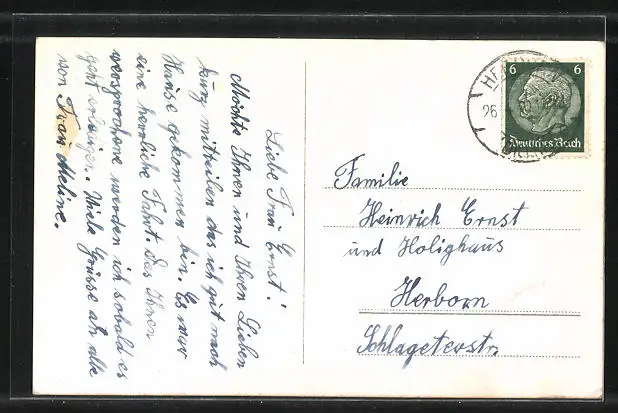 Liebe Frau Ernst!
Möchte Ihnen und Ihren Lieben
kurz mitteilen das ich gut nach
Hause gekommen bin. Es war
eine herrliche Fahrt. Das Ihnen
versprochene werden ich sobald es
geht erledigen. Viele Grüsse an alle
von Frau Heline.
6 6
Deutsches Reich
26
Familie
Heinrich Ernst
und Holighaus
Herborn
Schlageterstr.